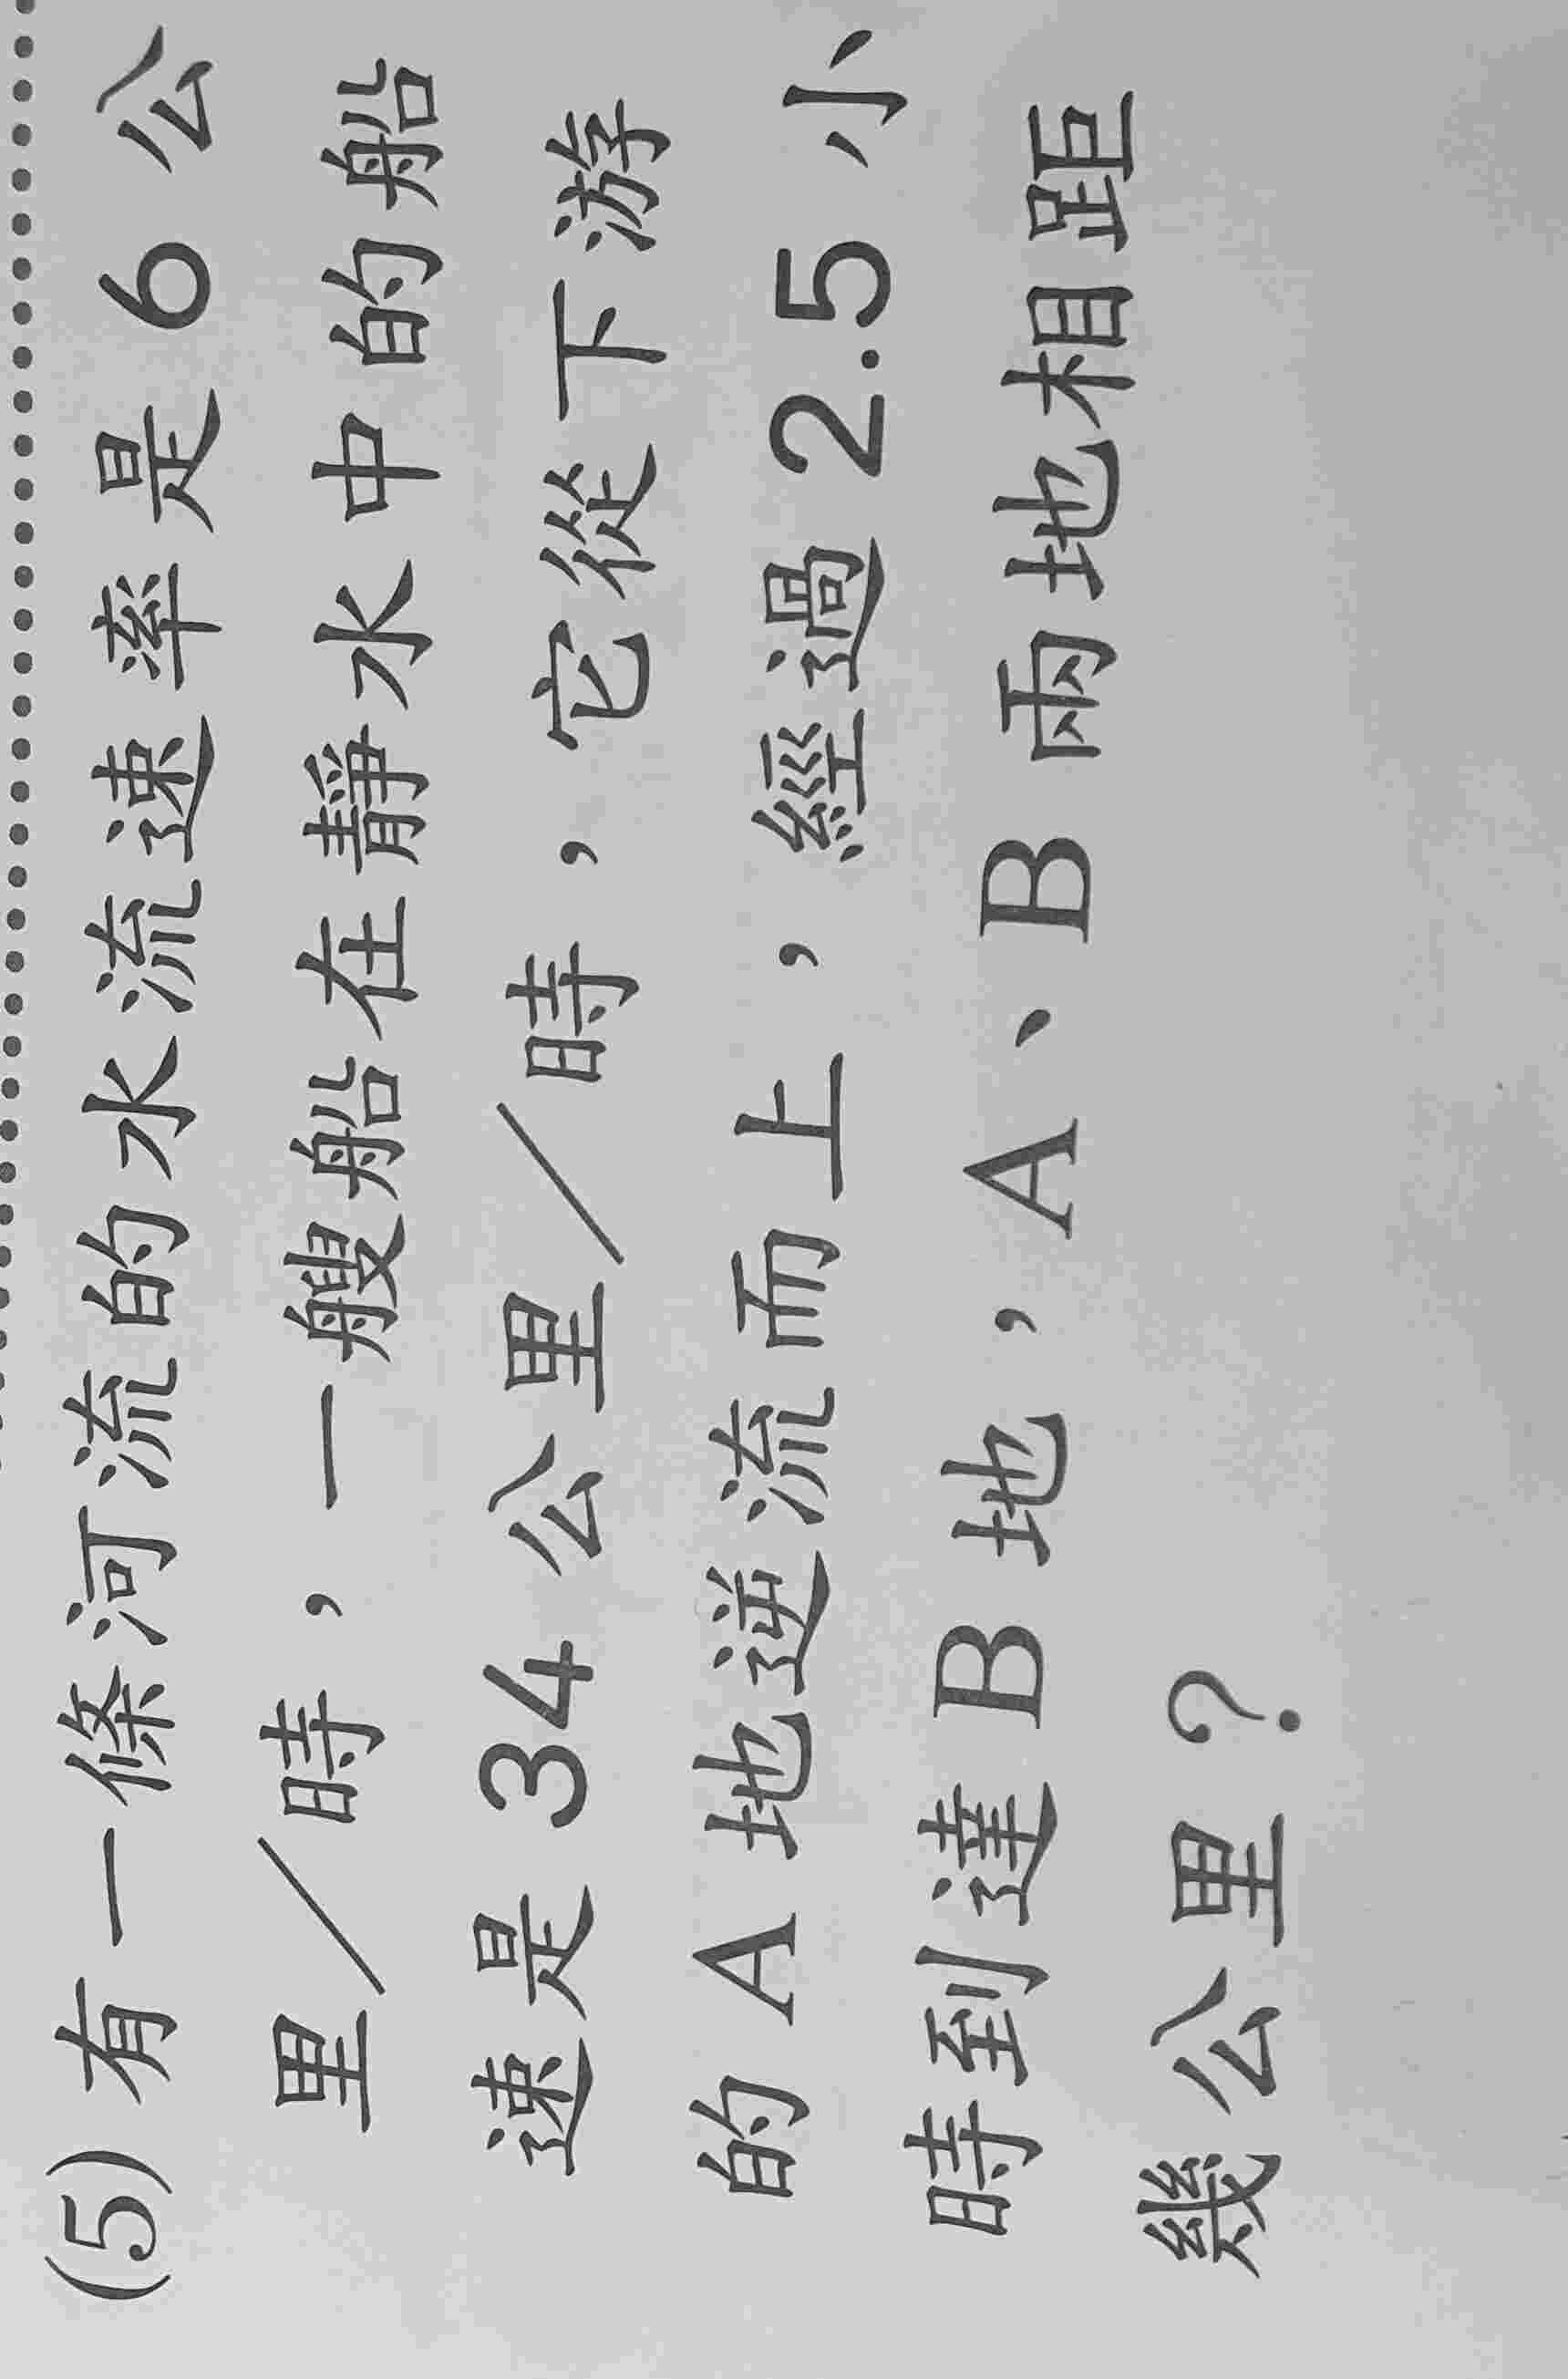 (5) 有一條河流的水流速率是 6 公
里／時，一艘船在靜水中的船
速是 34 公里／時，它從下游
的 A 地逆流而上，經過 2.5 小
時到達 B 地，A、B 兩地相距
幾公里？